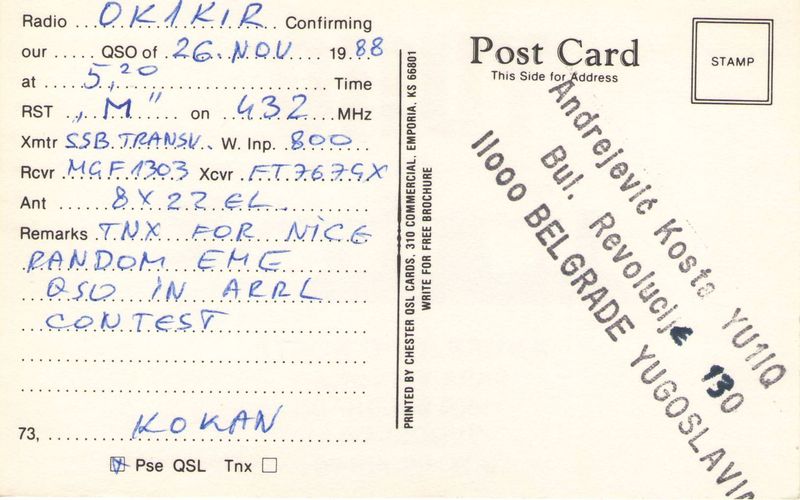 Radio OK1KIR Confirming
our QSO of 26. NOV 1988
at 5,20 Time
RST „M" on 432 MHz
Xmtr SSB.TRANSV. W. Inp. 800
Rcvr MGF1303 Xcvr FT767GX
Ant 8X22 EL.
Remarks TNX FOR NICE
RANDOM EME
QSO IN ARRL
CONTEST
73, KOKAN
Pse QSL Tnx
PRINTED BY CHESTER QSL CARDS, 310 COMMERCIAL, EMPORIA, KS 66801
WRITE FOR FREE BROCHURE
Post Card
This Side for Address
STAMP
Andrejević Kosta YU1IQ
Bul. Revolucije 130
11000 BELGRADE YUGOSLAVIA